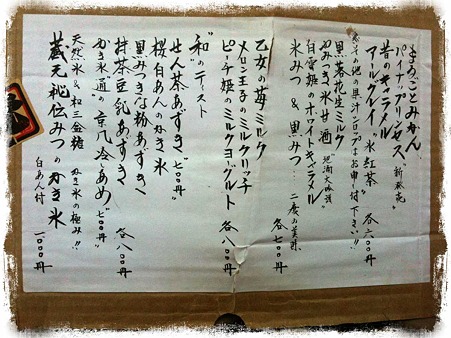 まるごとみかん
パイナップリンセス "新発売"
昔のキャラメル
アールグレイ "氷紅茶" 各六〇〇円
その他の果汁シロップはお申し付け下さい!!
黒落花生ミルク
かき氷甘酒
白雪姫のホワイトキャラメル
氷みつ & 黒みつ… 二度の美味 各七〇〇円
乙女の苺ミルク
メロン王子のミルクリッチ
ピーチ姫のミルクヨーグルト 各八〇〇円
"和"のテースト
せん茶あずき 七〇〇円
桜白あんのかき氷
黒みつきな粉あずき
抹茶豆乳あずき 各八〇〇円
かき氷通の"京風冷しあめ" 七〇〇円
天然氷&和三盆糖 かき氷の極み!!
蔵元秘伝みつのかき氷 白あん付 一〇〇〇円